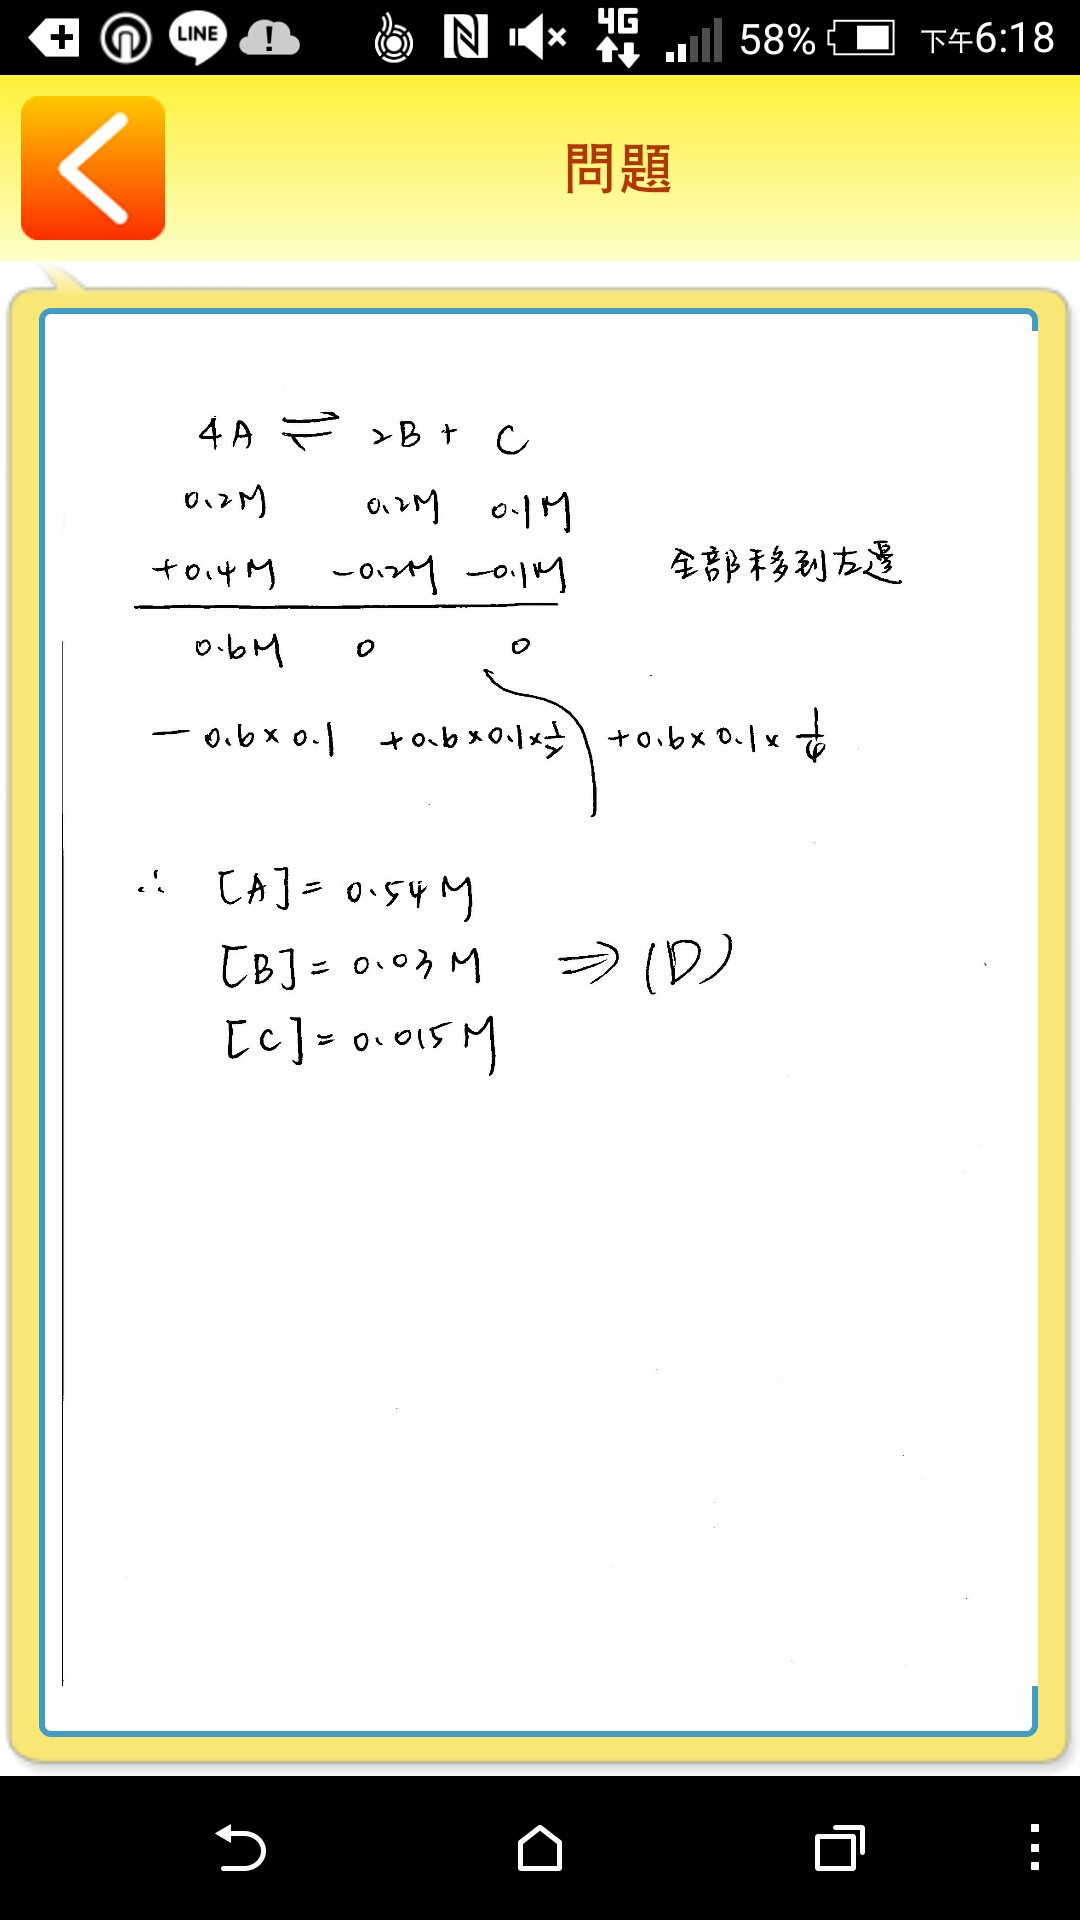 LINE 4G 58% 下午6:18
問題
4A ⇌ 2B + C
0.2M 0.2M 0.1M
+0.4M -0.2M -0.1M 全部移到左邊
0.6M 0 0
-0.6×0.1 +0.6×0.1×1/2 +0.6×0.1×1/4
∴ [A]=0.54M
[B]=0.03M ⇒(D)
[C]=0.015M